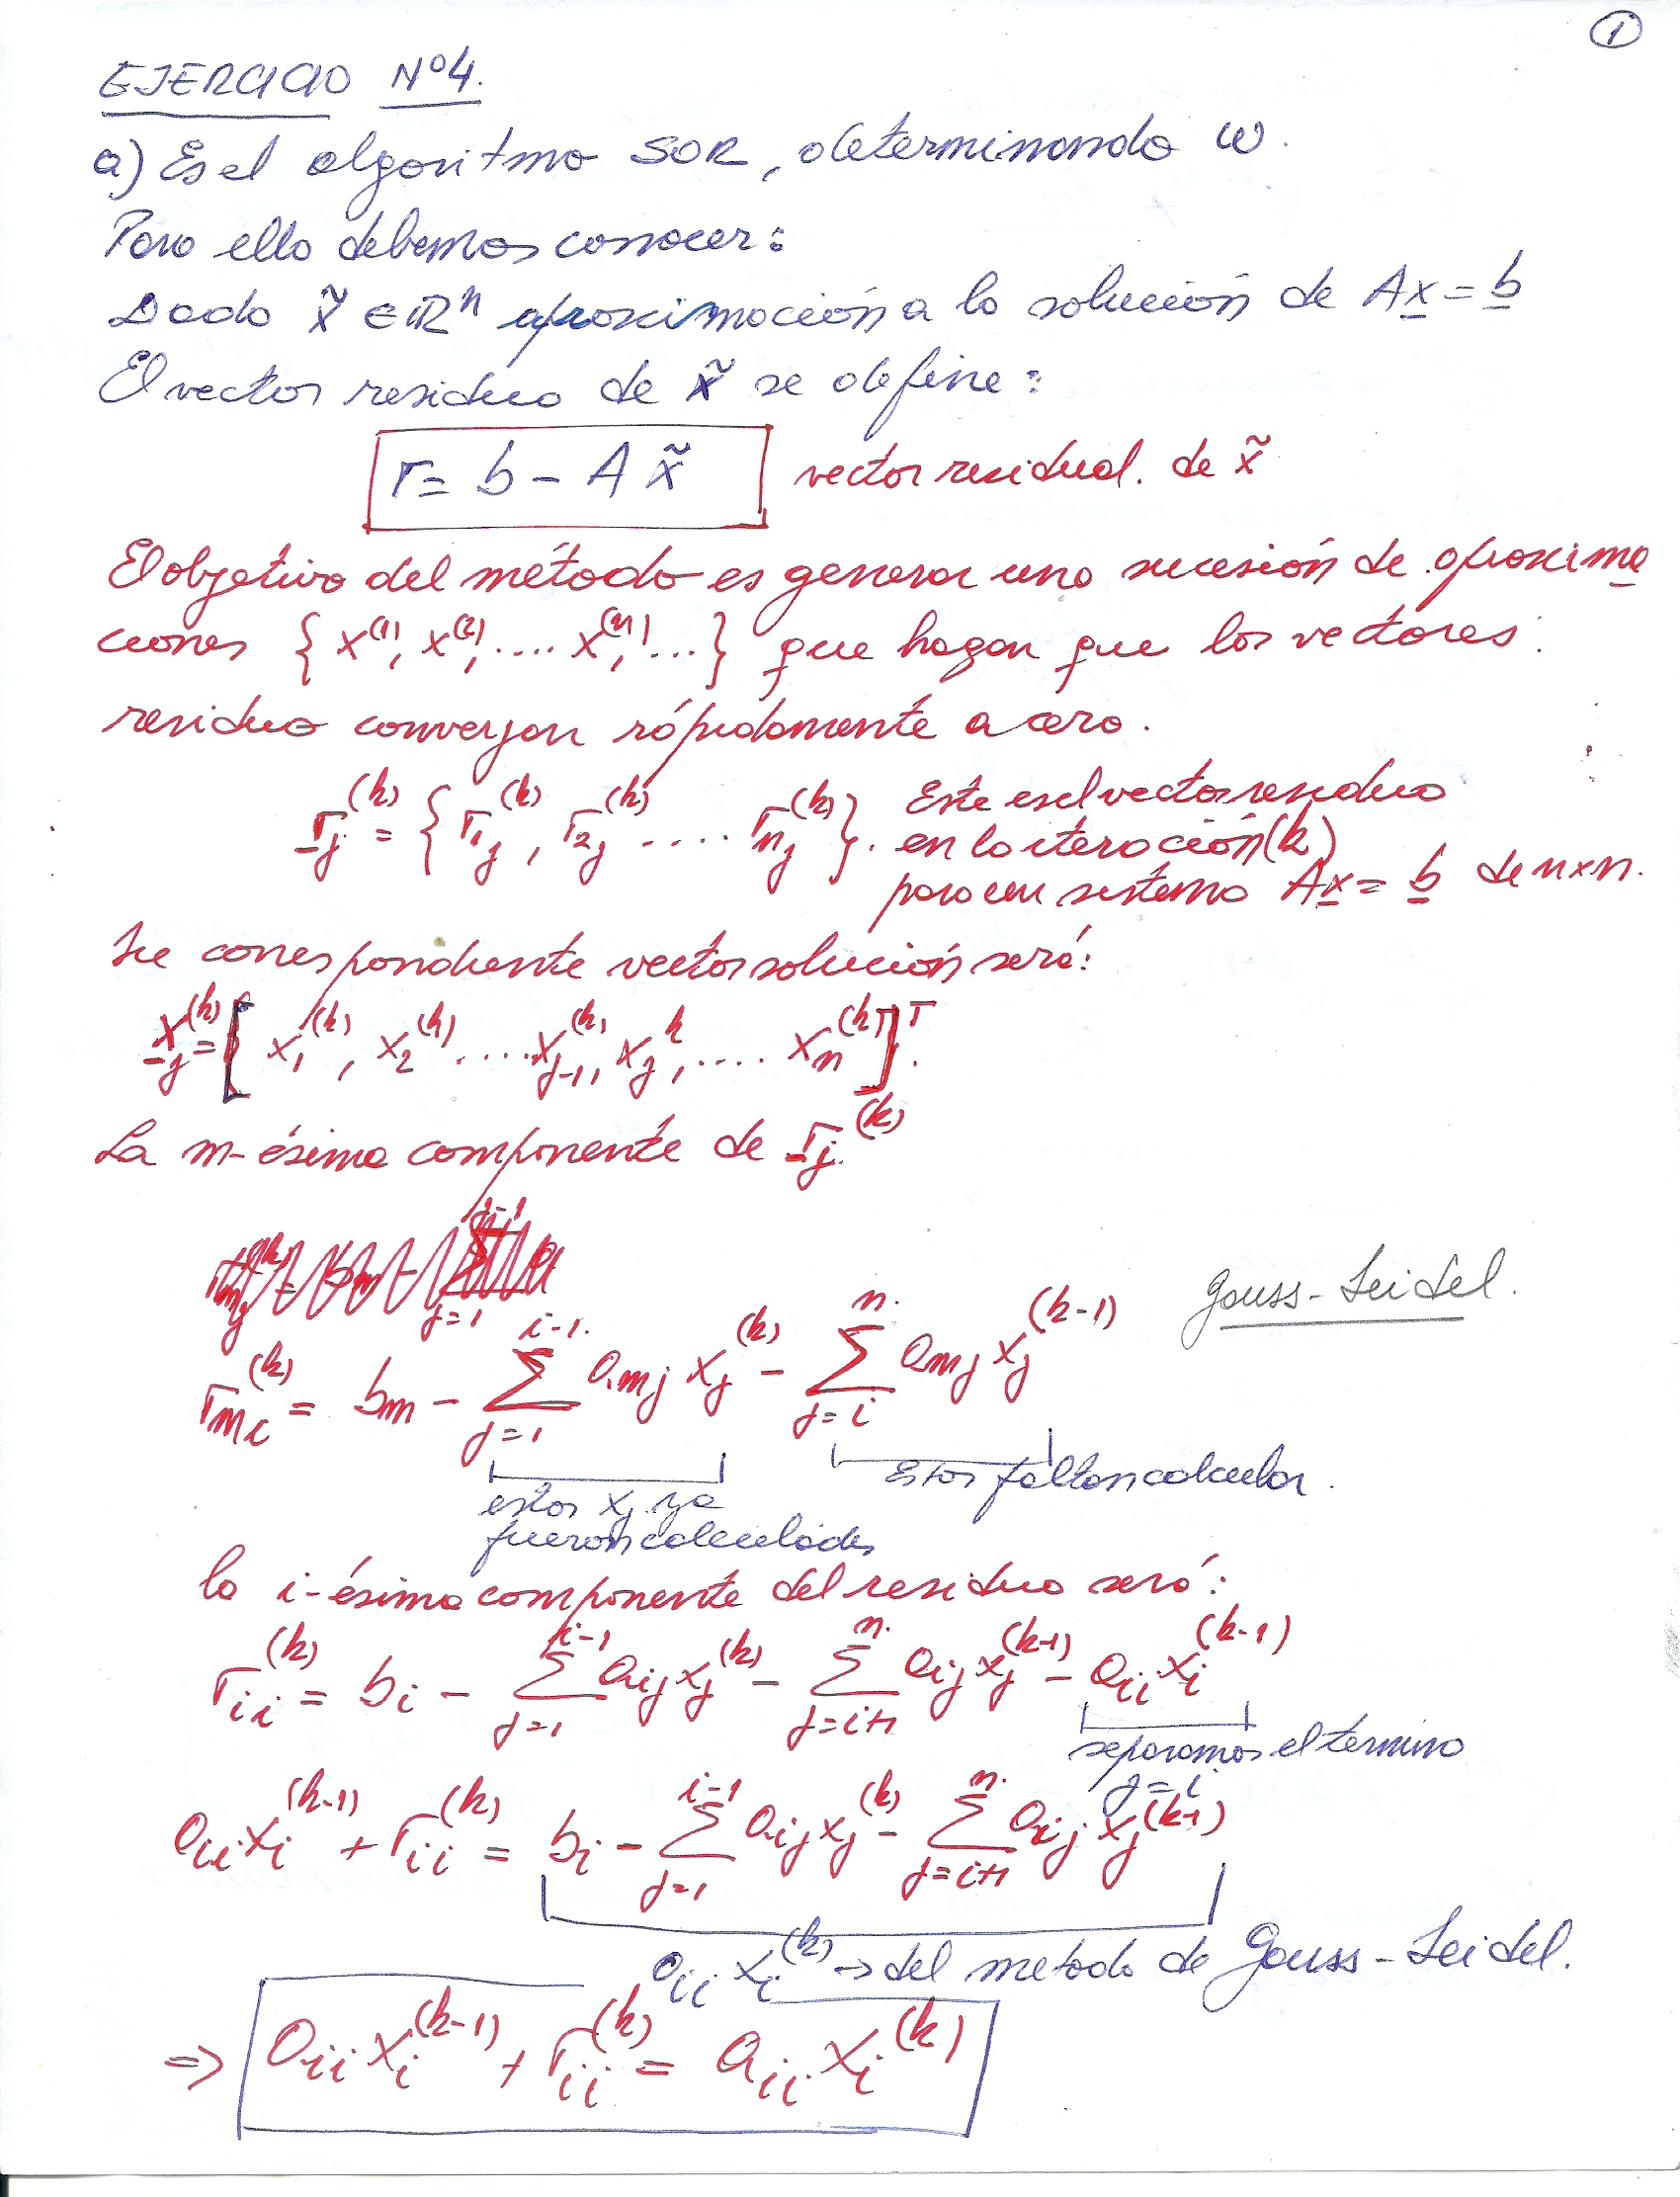 ①
EJERCICIO Nº4.
a) Es el algoritmo SOR, determinando ω.
Para ello debemos conocer:
Dado x̃ ∈ ℝⁿ aproximación a la solución de Ax = b
El vector residuo de x̃ se define:
r = b - A x̃ vector residual. de x̃
El objetivo del método es generar una sucesión de aproxima
ciones { x⁽¹⁾, x⁽²⁾, .... x⁽ⁿ⁾, ...} que hagan que los vectores
residuo converjan rápidamente a cero.
r_j^(k) = { r_1j^(k), r_2j^(k) .... r_nj^(k) }. Este es el vector residuo
en la iteración (k)
para un sistema Ax = b de n×n.
Su correspondiente vector solución será:
x_j^(k) = [ x_1^(k), x_2^(k) .... x_j-1^(k), x_j^k, .... x_n^(k) ]^T.
La m-ésima componente de r_j^(k)
Gauss-Seidel.
r_mi^(k) = b_m - Σ_{j=1}^{i-1} a_mj x_j^(k) - Σ_{j=i}^{n} a_mj x_j^(k-1)
estos x_j ya
fueron calculados
Estos faltan calcular.
la i-ésima componente del residuo será:
r_ii^(k) = b_i - Σ_{j=1}^{i-1} a_ij x_j^(k) - Σ_{j=i+1}^{n} a_ij x_j^(k-1) - a_ii x_i^(k-1)
separamos el termino
j = i
a_ii x_i^(k-1) + r_ii^(k) = b_i - Σ_{j=1}^{i-1} a_ij x_j^(k) - Σ_{j=i+1}^{n} a_ij x_j^(k-1)
a_ii x_i^(k) → del metodo de Gauss-Seidel.
⇒ a_ii x_i^(k-1) + r_ii^(k) = a_ii x_i^(k)